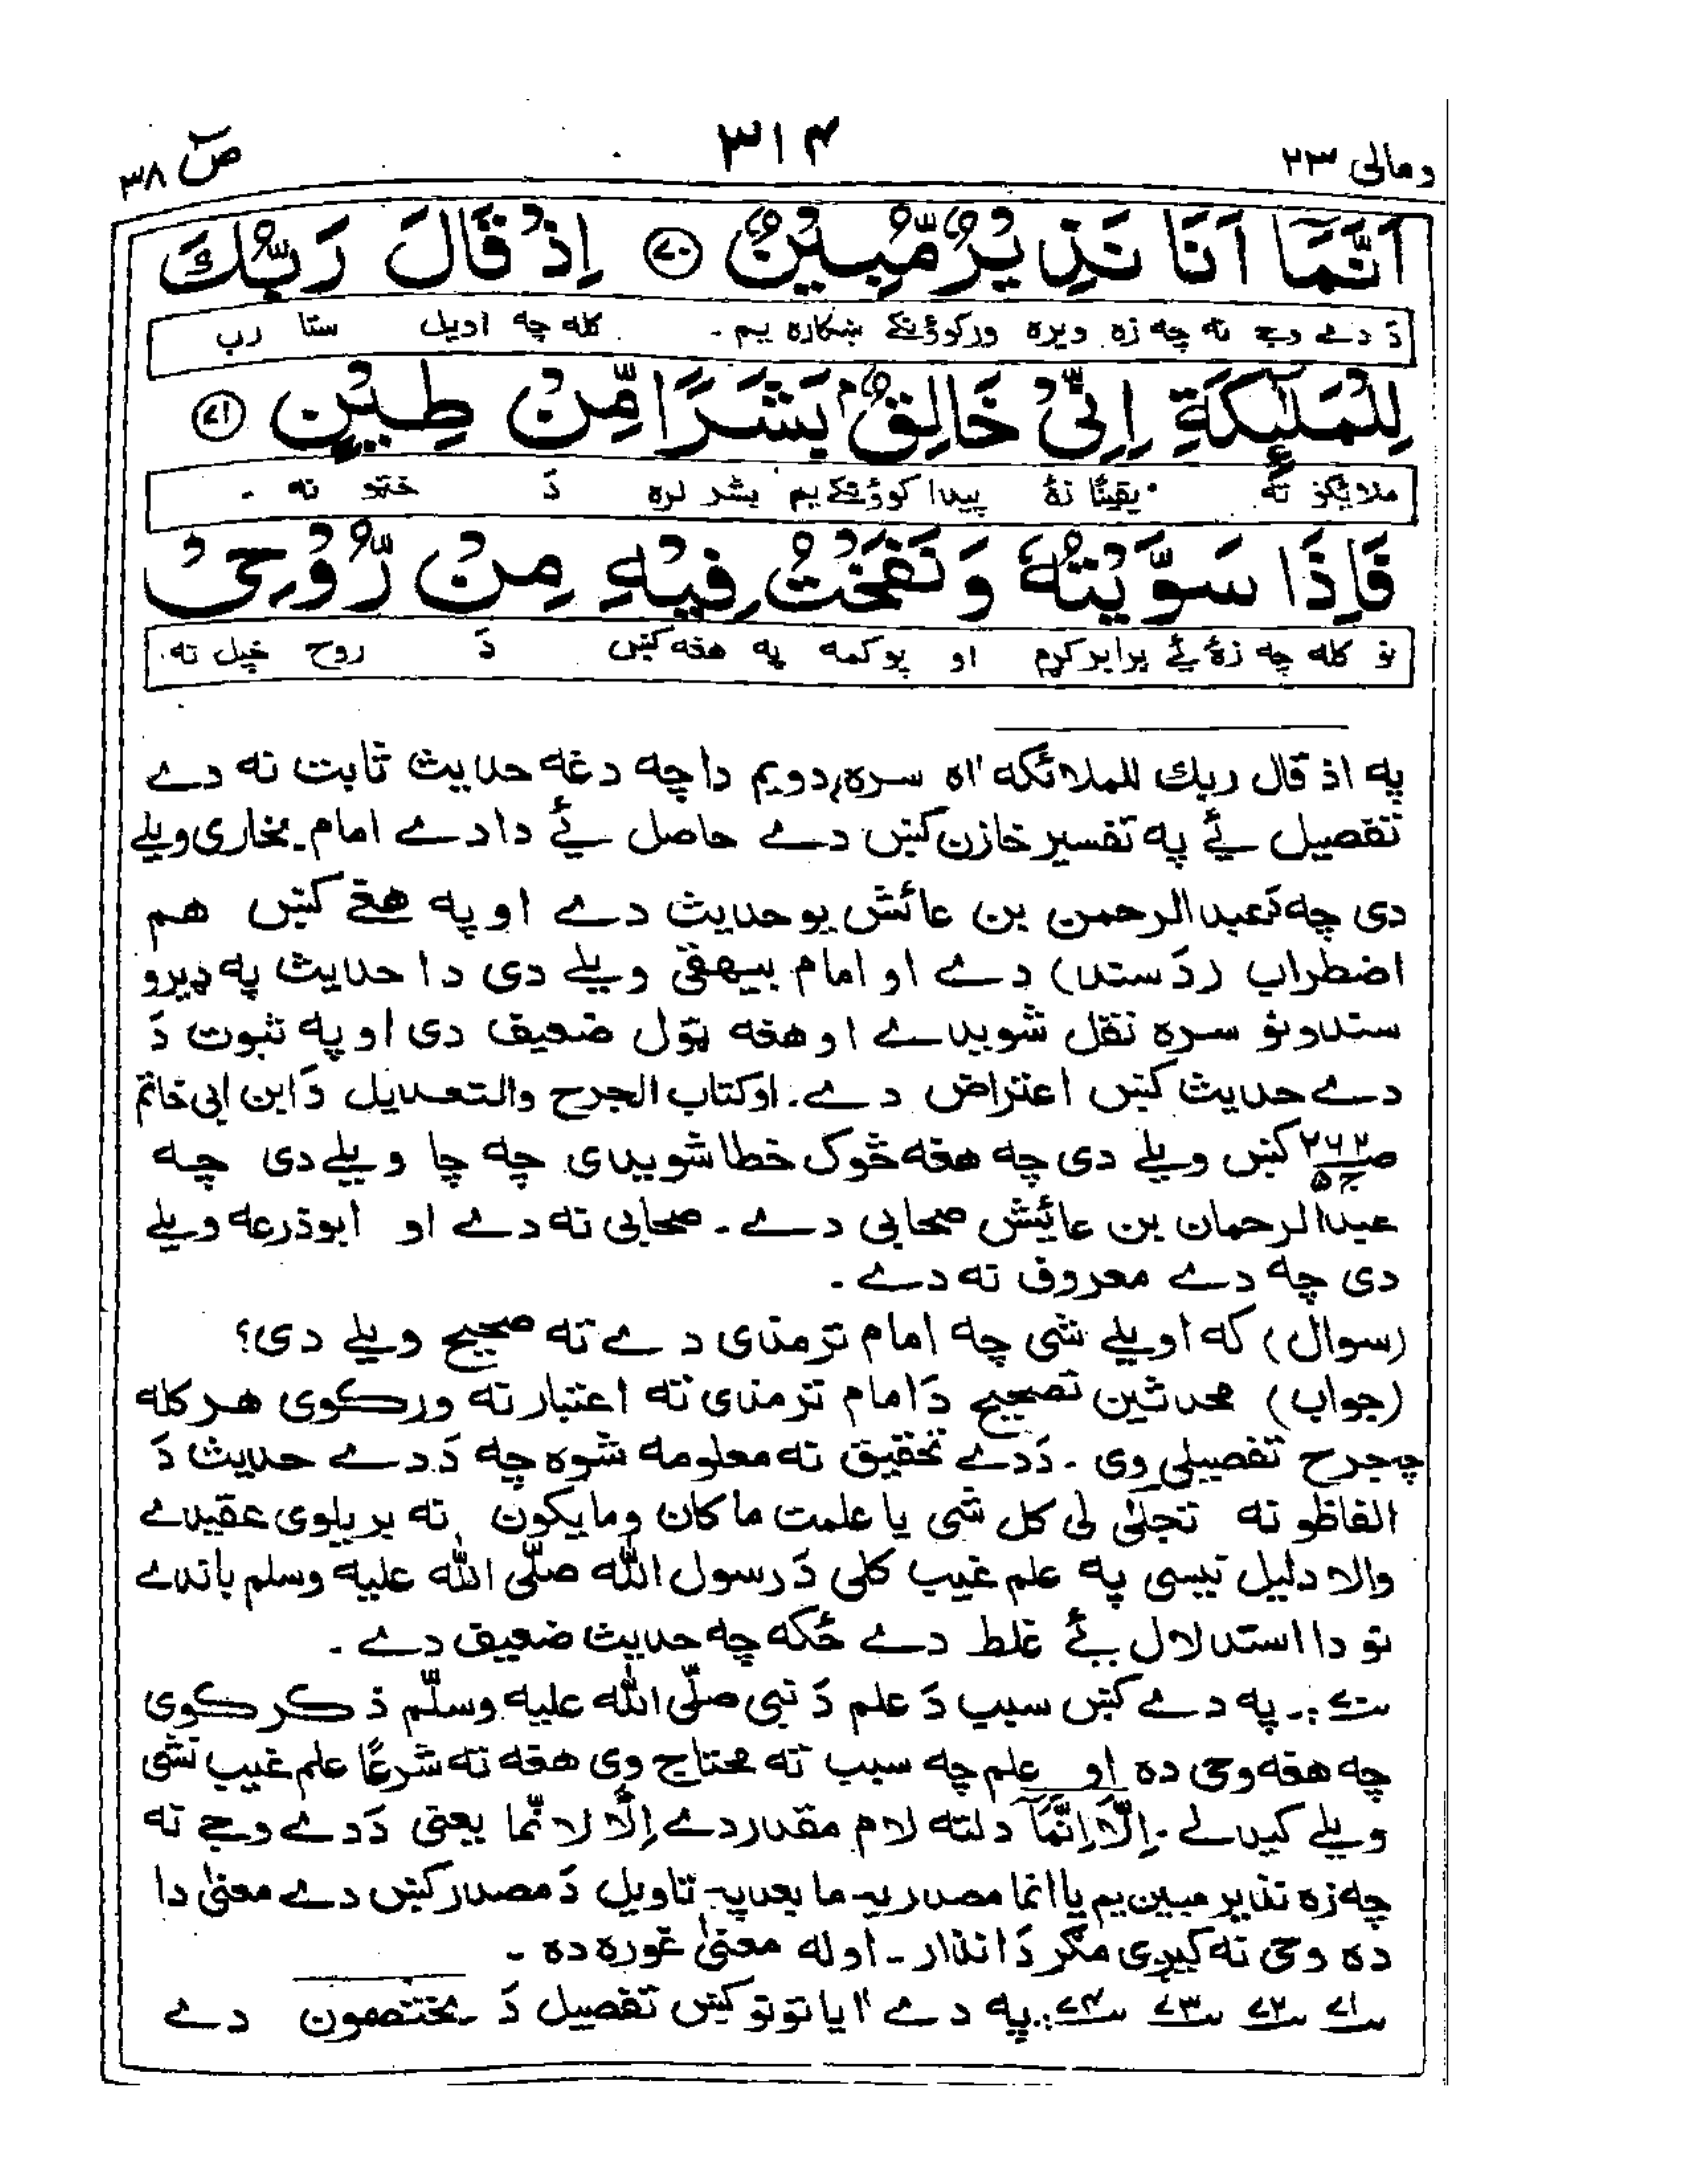 ومالی ۲۳
۳۱۴
صٓ ۳۸
اَنَّمَآ اَنَا نَذِيْرٌ مُّبِيْنٌ ﴿۷۰﴾ اِذْ قَالَ رَبُّكَ
دَ دے وجے نه چه زه ویره ورکوؤنکے ښکاره یم۔ کله چه اویل ستا رب
لِلْمَلٰٓئِكَةِ اِنِّىْ خَالِقٌۢ بَشَرًا مِّنْ طِيْنٍ ﴿۷۱﴾
ملائیکو ته یقینًا زۀ پیدا کوؤنکے یم بشر لره دَ ختو نه ۔
فَاِذَا سَوَّيْتُهٗ وَنَفَخْتُ فِيْهِ مِنْ رُّوْحِىْ
نو کله چه زۀ ئے برابر کړم او پوکمه په هغه کښ دَ روح خپل نه۔
په اذ قال ربك للملائكه اه سره، دویم دا چه دغه حدیث ثابت نه دے
تفصیل ئے په تفسیر خازن کښ دے حاصل ئے دا دے امام بخاری ویلے
دی چه دَعبدالرحمن بن عائش یو حدیث دے او په هغے کښ هم
اضطراب (دَ سند) دے او امام بیهقی ویلے دی دا حدیث په ډیرو
سندونو سره نقل شویدے او هغه ټول ضعیف دی او په ثبوت دَ
دے حدیث کښ اعتراض دے۔ اوکتاب الجرح والتعدیل دَ ابن ابی خاتم
ص۲۶۲ ج۵ کښ ویلے دی چه هغه څوک خطا شویدی چه چا ویلے دی چه
عبدالرحمان بن عائیش صحابی دے ۔ صحابی نه دے او ابوذرعه ویلے
دی چه دے معروف نه دے ۔
(سوال) که اویلے شی چه امام ترمذی دے ته صحیح ویلے دی؟
(جواب) محدثین تصحیح دَ امام ترمذی ته اعتبار نه ورکوی هر کله
چه جرح تفصیلی وی ۔ دَدے تحقیق نه معلومه شوه چه دَ دے حدیث دَ
الفاظو نه تجلیٰ لی کل شی یا علمت ما کان وما یکون نه بریلوی عقیدے
والا دلیل نیسی په علم غیب کلی دَ رسول الله صلّی الله علیه وسلم باندے
نو دا استدلال ئے غلط دے ځکه چه حدیث ضعیف دے ۔
؀۷۰:۔ په دے کښ سبب دَ علم دَ نبی صلّی الله علیه وسلّم ذکر کوی
چه هغه وحی ده او علم چه سبب ته محتاج وی هغه ته شرعًا علم غیب نشی
ویلے کیدلے ۔ اِلَّآ اِنَّمَآ دلته لام مقدر دے اِلَّا لانّما یعنی دَ دے وجے نه
چه زه نذیر مبین یم یا انما مصدریه ما بعد په تاویل دَ مصدر کښ دے معنیٰ دا
ده وحی نه کیږی مگر دَ انذار ۔ اوله معنیٰ غوره ده ۔
؀۷۱ ؀۷۲ ؀۷۳ ؀۷۴:۔ په دے ایاتونو کښ تفصیل دَ یختصمون دے